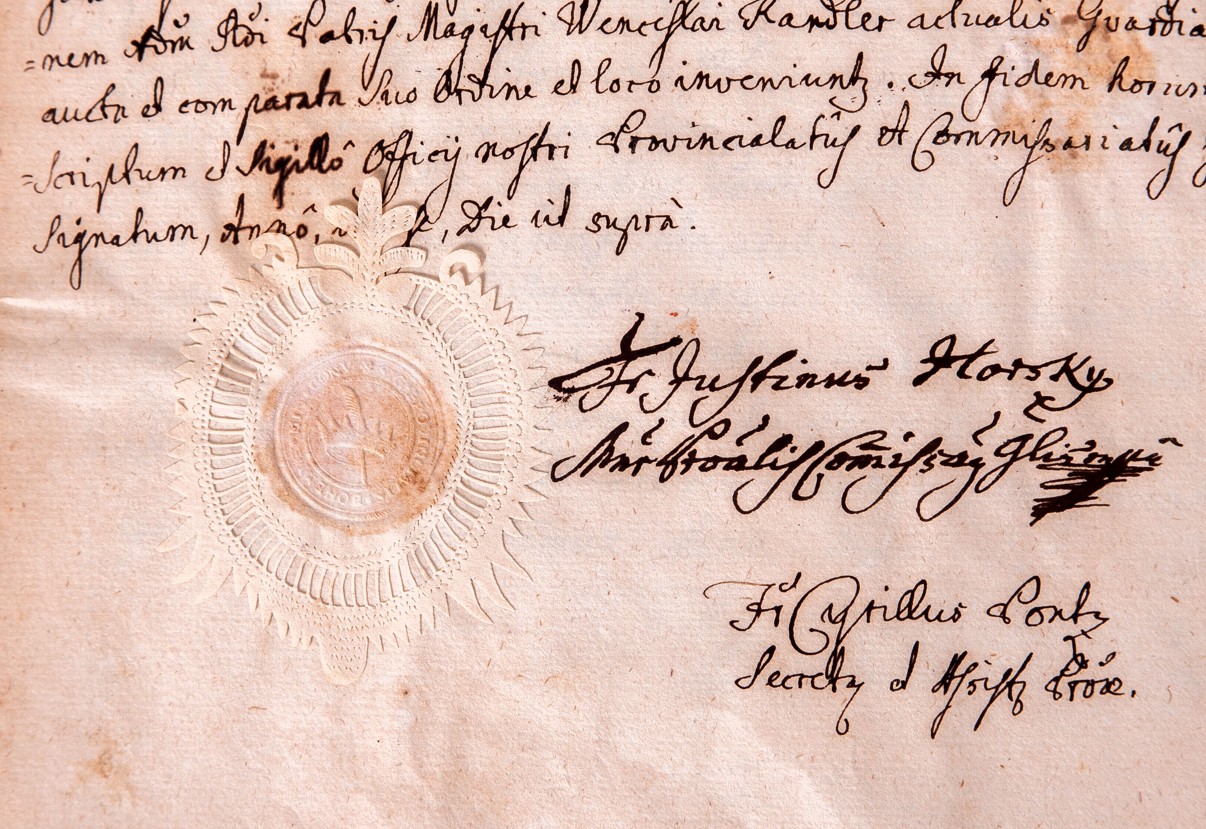 =nem Adm Rdi Patris Magistri Wenceslai Kandler actualis Guardia
aucta et comparata suo Ordine et loco inveniuntz. In fidem horum
=scriptum et Sigillô Officij nostri Provincialatûs et Commissariatûs
signatum, Annô, Die ut suprà.
Fr Justinus Horsky
Mnr Proãlis Comissarg
Fr Cyrillus Pontz
Secretz et Assistz Prõæ.